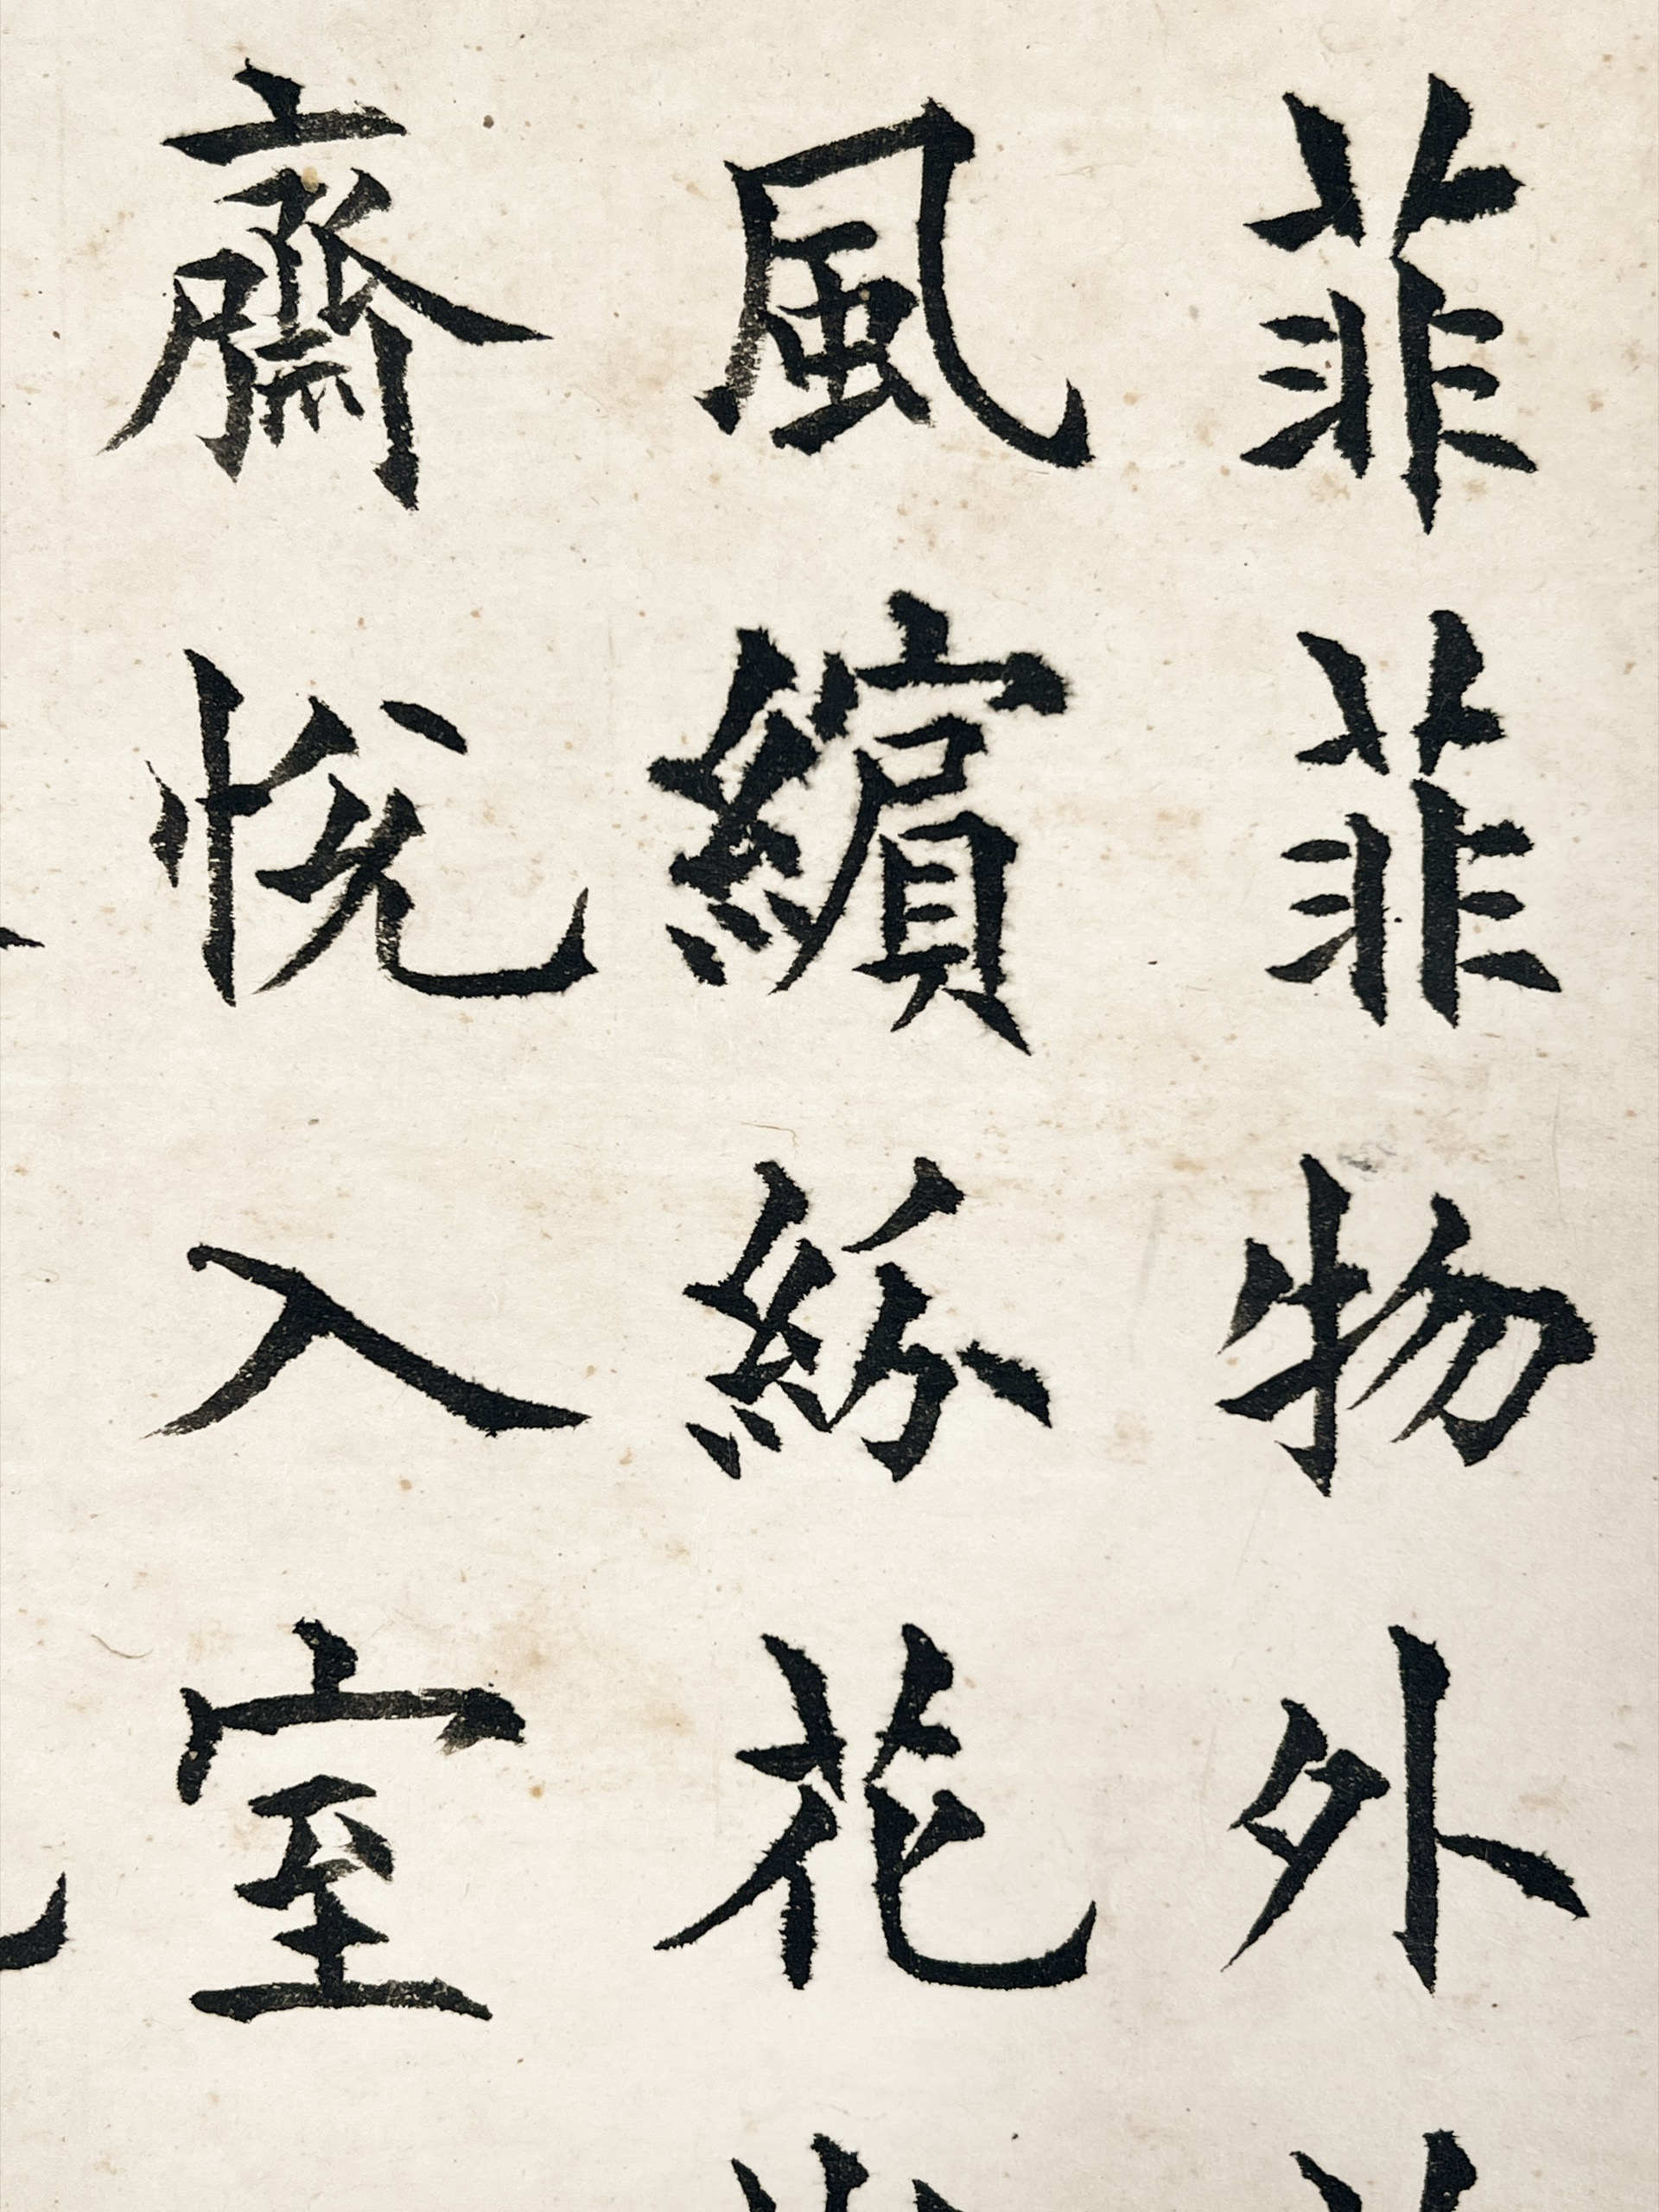 菲菲物外
風繽紛花
齋悅入室